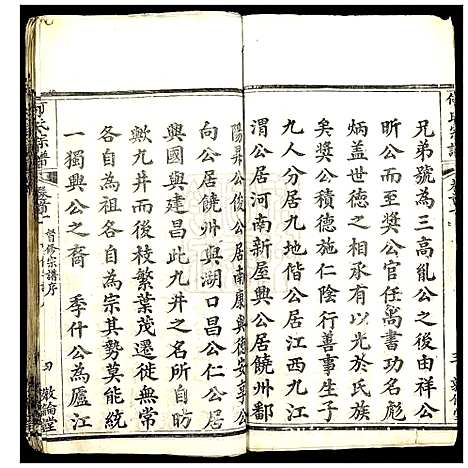 兄弟號為三高胤公之由祥公
昕公而至獎公官任禹書功名彪
炳蓋世德之相承有以光於氏族
矣獎公積德施仁陰行善事生子
九人分居九地偕公居江西九江
渭公居河南新屋興公居饒州鄱
陽昇公俊公居南康與德安享公
向公居饒州與湖口昌公仁公居
興國與建昌此九井之名所自
歟九井而後枝繁葉茂遷徙無常
各自為祖各自為宗其勢莫能統
一獨興公之裔 季什公為廬江
何氏宗譜 卷首 督修宗譜序 敦倫堂